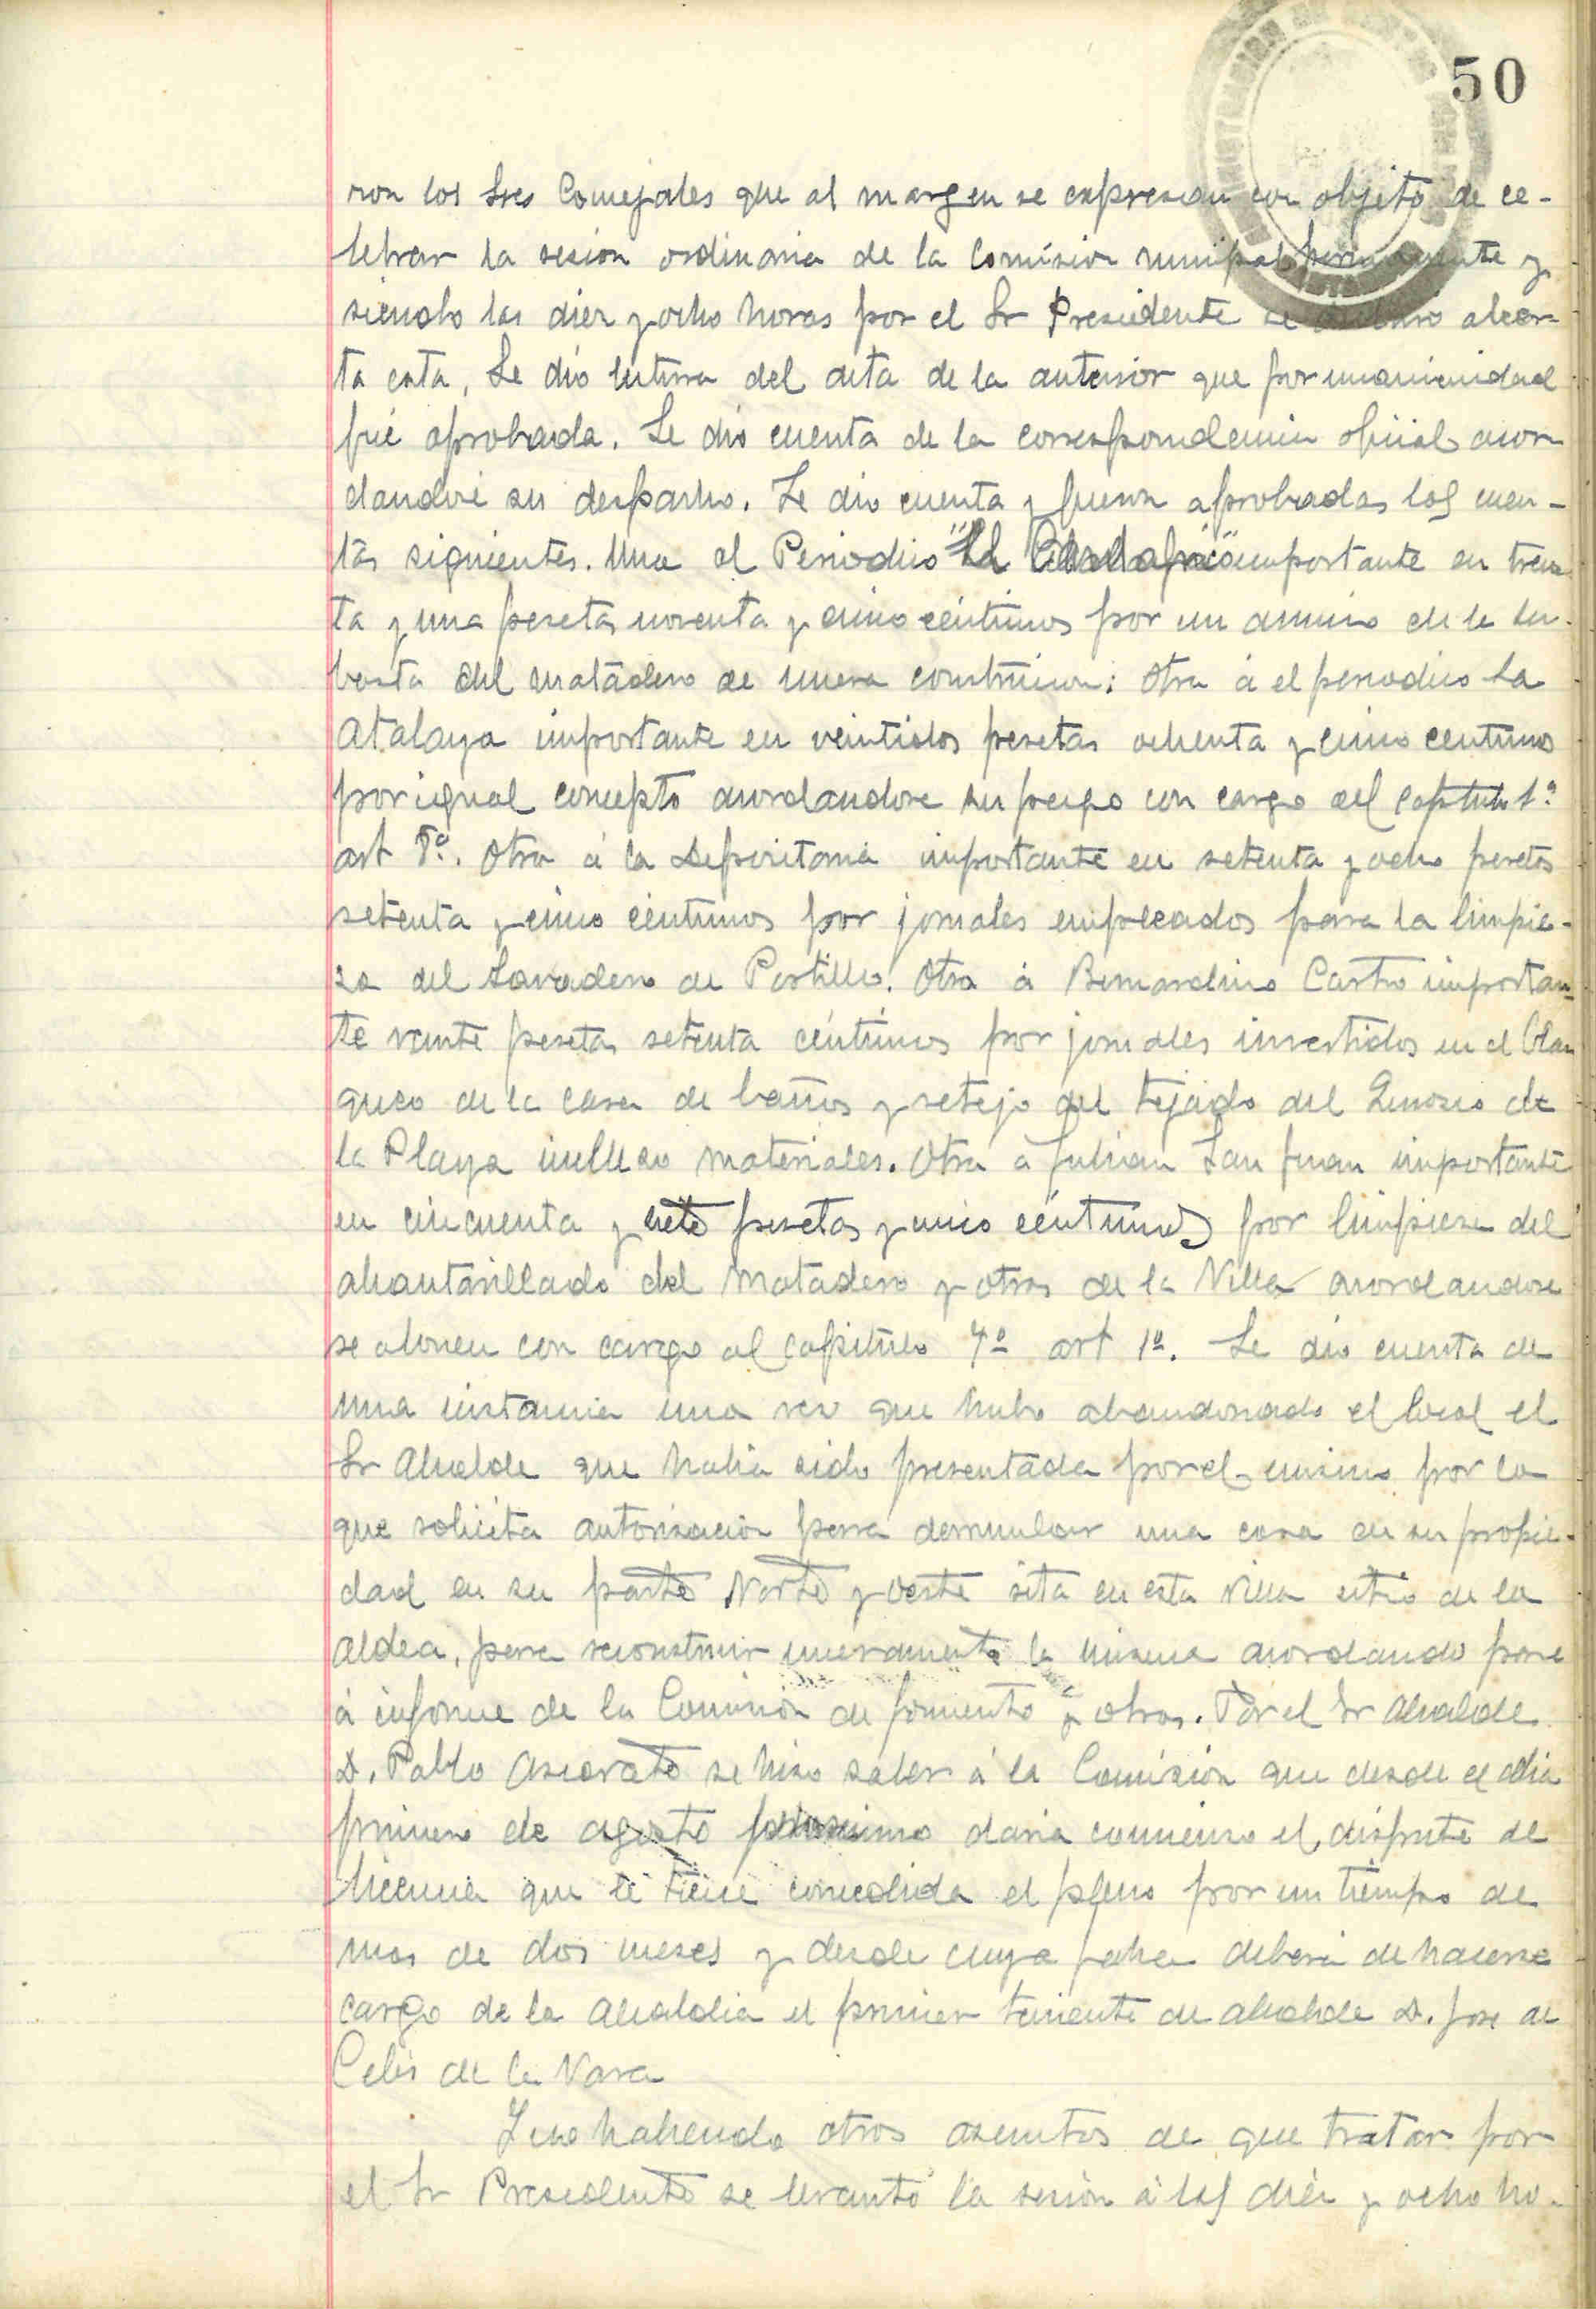 50
ron los Sres Concejales que al margen se expresan con objeto de ce-
lebrar la sesion ordinaria de la Comision municipal permanente y
siendo las diez y ocho horas por el Sr Presidente se declaró abier-
ta esta. Se dió lectura del acta de la anterior que por unanimidad
fué aprobada. Se dió cuenta de la correspondencia oficial acor
dandose su despacho. Se dio cuenta y fueron aprobadas las cuen-
tas siguientes. Una al Periodico "El Cantabrico" importante en trein
ta y una pesetas noventa y cinco céntimos por un anuncio de la su-
basta del matadero de nueva construccion: Otra á el periodico La
Atalaya importante en veintidos pesetas ochenta y cinco centimos
por igual concepto acordandose su pago con cargo del capitulo 1º
art 8º. Otra á la Depositaria importante en setenta y ocho pesetas
setenta y cinco céntimos por jornales empleados para la limpie-
za del Lavadero de Portillo. Otra á Bernardino Castro importan
te veinte pesetas setenta céntimos por jornales invertidos en el blan
queo de la casa de baños y retejo del tejado del Kiosco de
la Playa incluso materiales. Otra a Julian San Juan importante
en cincuenta y siete pesetas y cinco céntimos por limpieza del
alcantarillado del Matadero y otras de la Villa acordandose
se abonen con cargo al capitulo 4º art 1º. Se dió cuenta de
una instancia una vez que hubo abandonado el local el
Sr Alcalde que habia sido presentada por el mismo por la
que solicita autorizacion para derrumbar una casa de su propie-
dad en su parte Norte y Oeste sita en esta Villa sitio de la
Aldea, para reconstruir nuevamente la misma acordando pase
á informe de la Comision de fomento y obras. Por el Sr Alcalde
D. Pablo Ascarate se hizo saber á la Comision que desde el dia
primero de agosto proximo daria comienzo el disfrute de
licencia que le tiene concedida el pleno por un tiempo de
mas de dos meses y desde cuya fecha deberá de hacerse
cargo de la Alcaldia el primer teniente de alcalde D. Jose de
Celis de la Vara
Y no habiendo otros asuntos de que tratar por
el Sr Presidente se levantó la sesion á las diez y ocho ho-